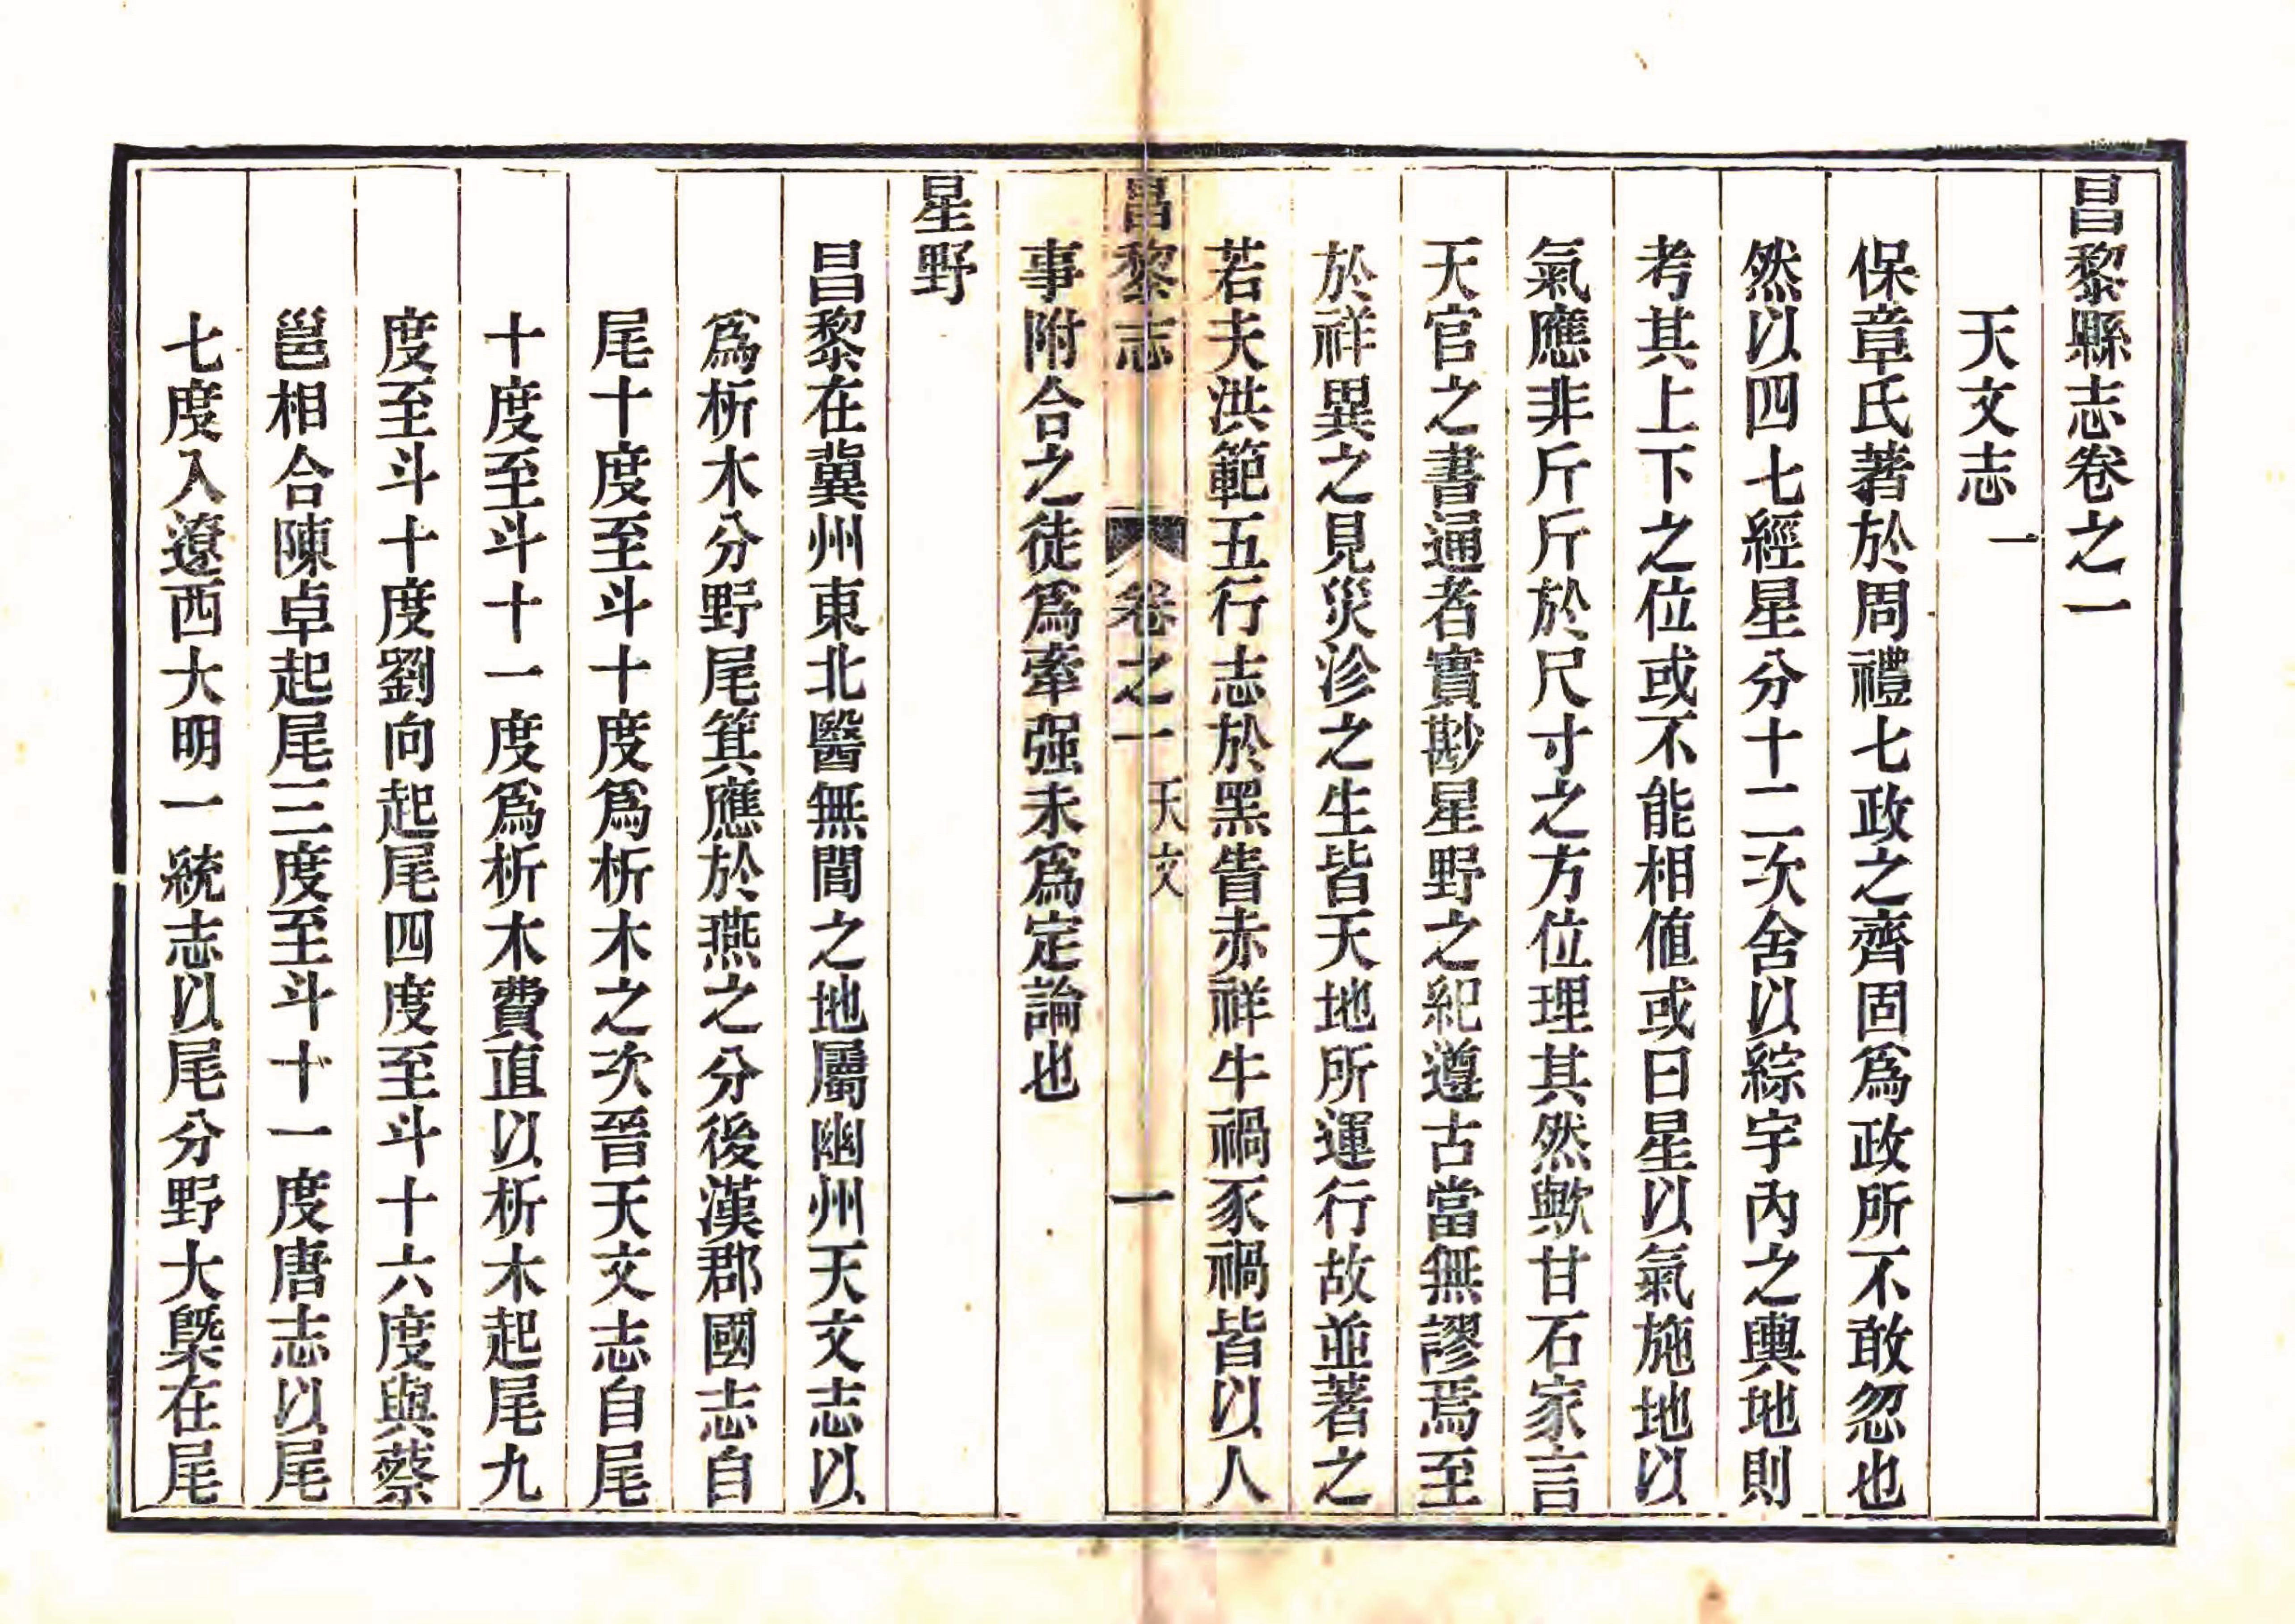 昌黎縣志卷之一
天文志一
保章氏著於周禮七政之齊固爲政所不敢忽也
然以四七經星分十二次舍以綜宇內之輿地則
考其上下之位或不能相値或曰星以氣施地以
氣應非斤斤於尺寸之方位理其然歟甘石家言
天官之書通者實尠星野之紀遵古當無謬焉至
於祥異之見災沴之生皆天地所運行故並著之
若夫洪範五行志於黑眚赤祥牛禍豕禍皆以人
昌黎志 卷之一 天文 一
事附合之徒爲牽强未爲定論也
星野
昌黎在冀州東北醫無閭之地屬幽州天文志以
爲析木分野尾箕應於燕之分後漢郡國志自
尾十度至斗十度爲析木之次晉天文志自尾
十度至斗十一度爲析木費直以析木起尾九
度至斗十度劉向起尾四度至斗十六度與蔡
邕相合陳卓起尾三度至斗十一度唐志以尾
七度入遼西大明一統志以尾分野大槩在尾